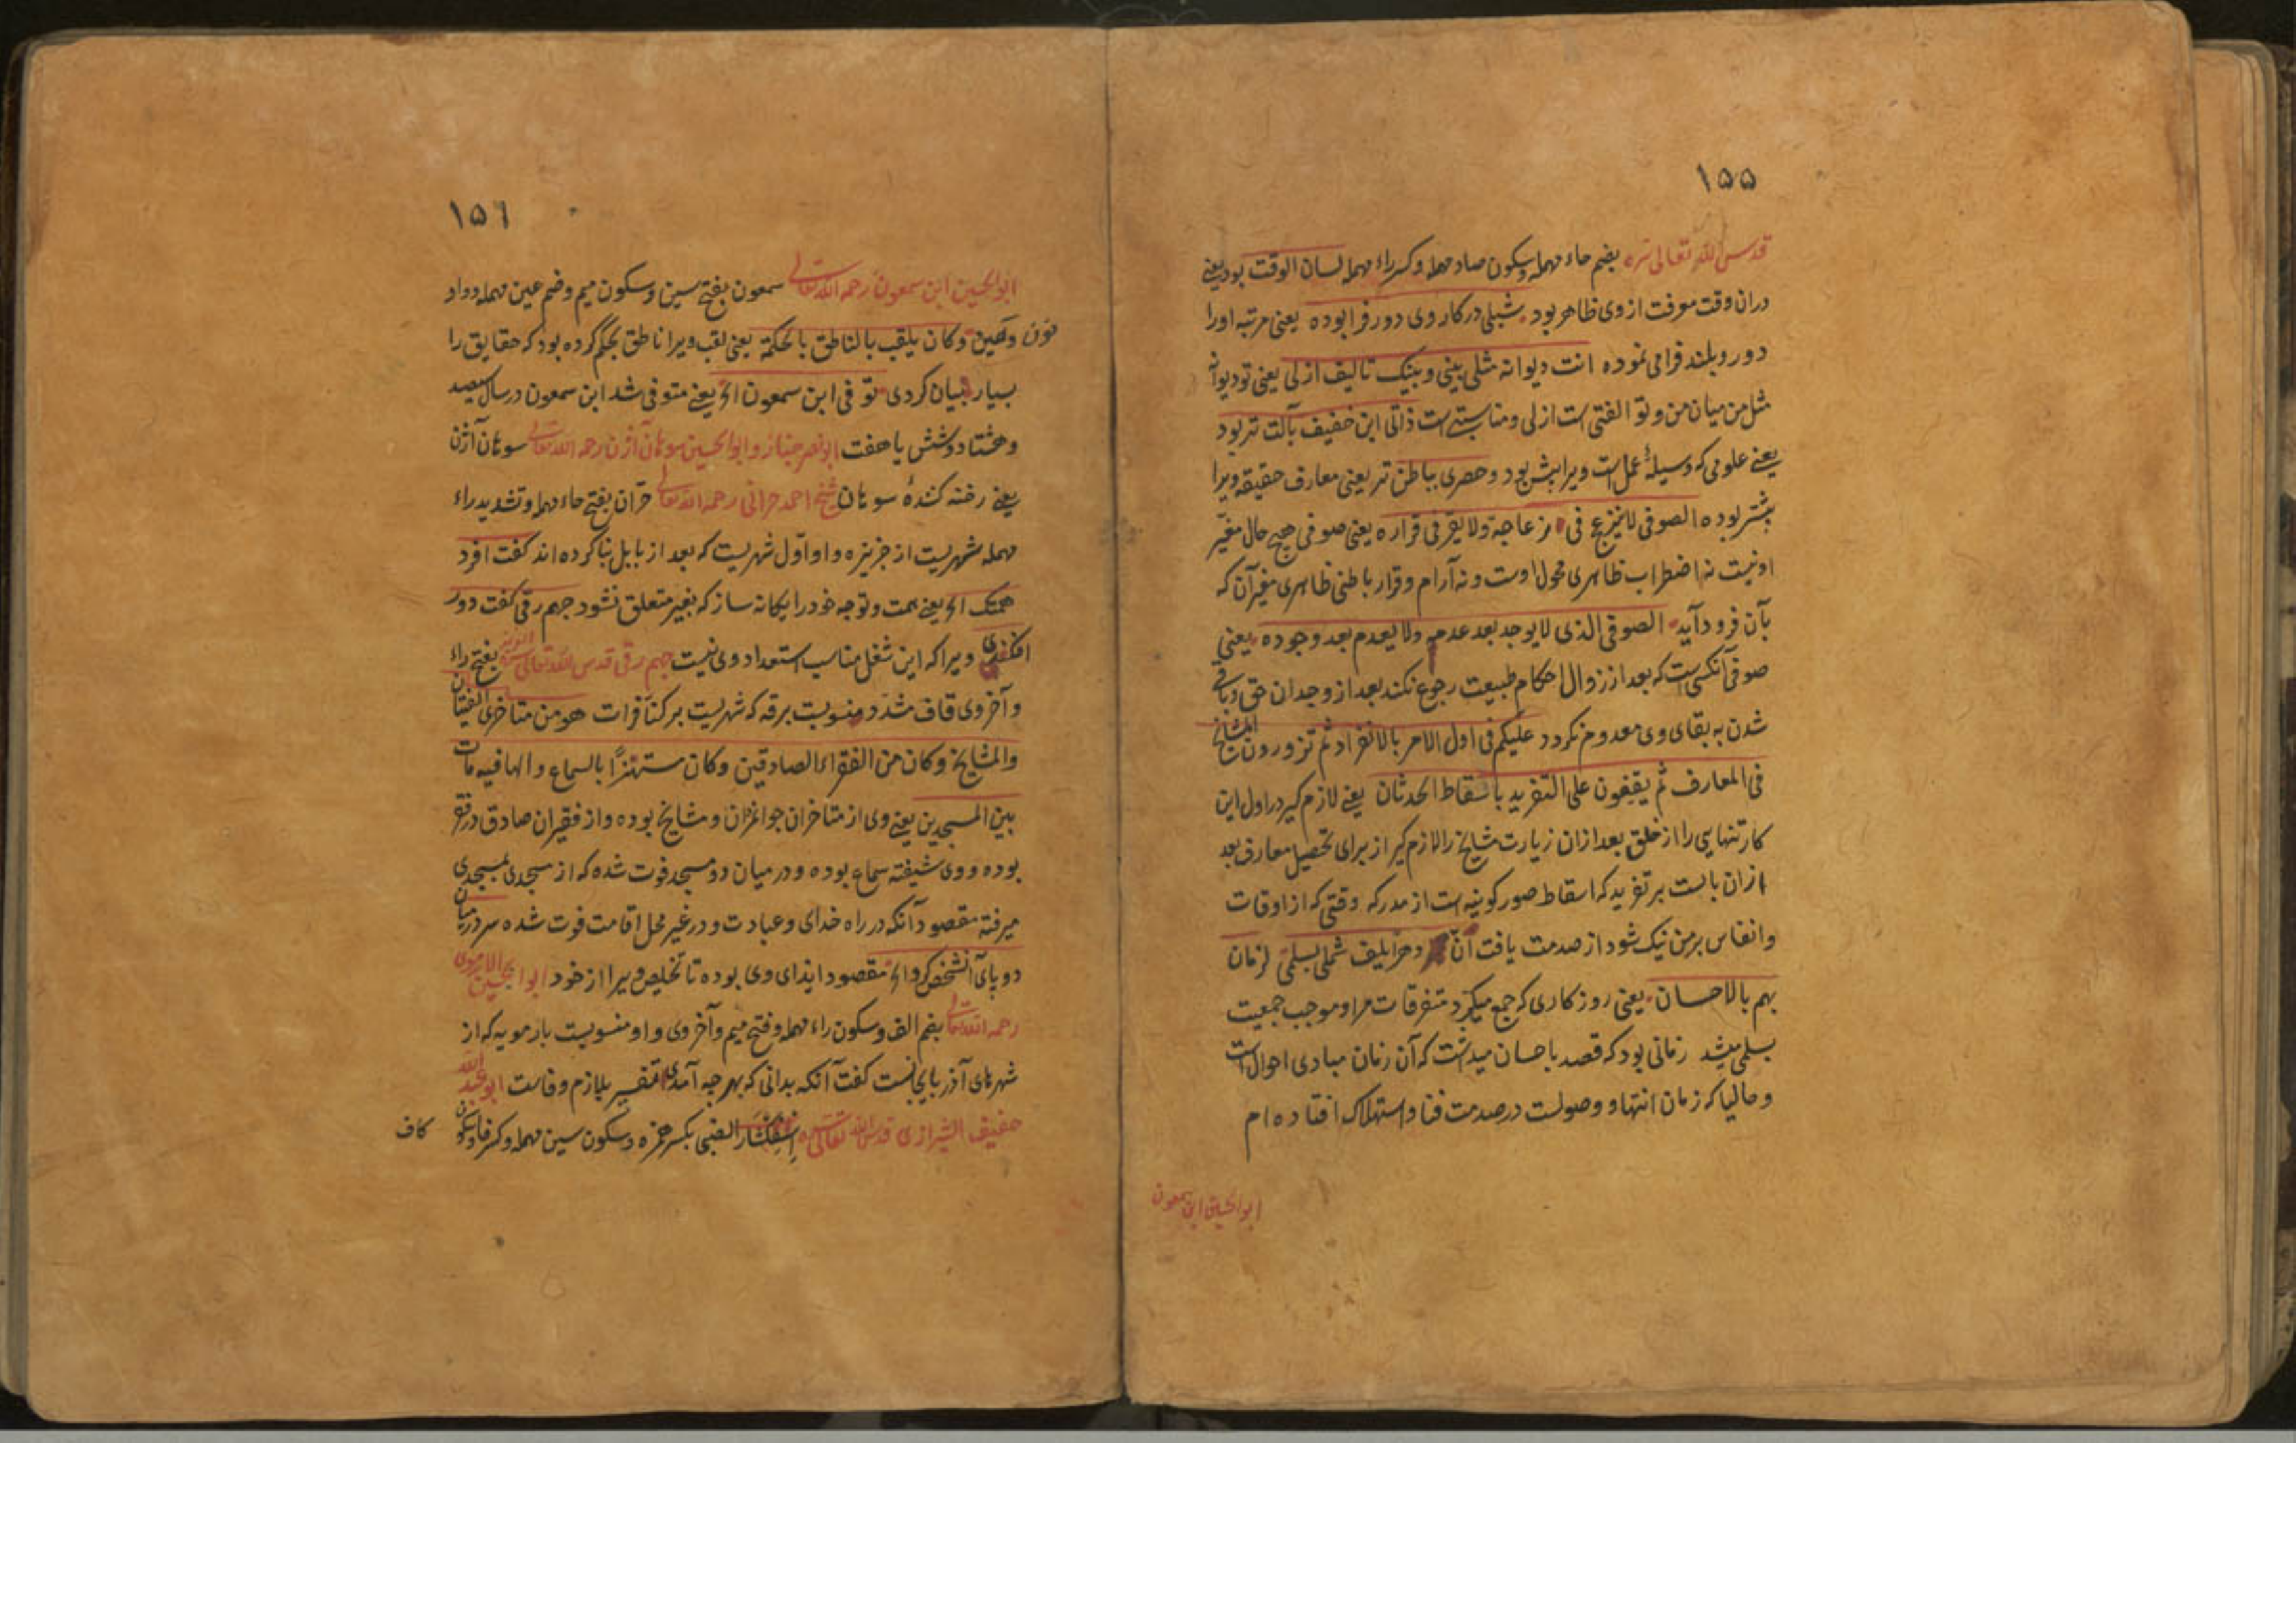 ۱۵۵
قدس الله تعالی سره بضم حاء مهمله وسکون صاد مهمله وکسر راء مهمله لسان الوقت بود یعنی
دران وقت معرفت از وی ظاهر بود شبلی در کار وی دور فرا بوده یعنی مرتبه اورا
دور وبلند فرامی نموده انت دیوانه مثلی بینی وبینک تالیف ازلی یعنی تو دیوانه
مثل من میان من وتو الفتی است ازلی ومناسبتی است ذاتی ابن خفیف بآلت تر بود
یعنی علومی که وسیلهٔ عمل است ویرا بیش بود وحصری بباطن تر یعنی معارف حقیقه ویرا
بیشتر بوده الصوفی لا ینزعج فی انزعاجه ولا یقر فی قراره یعنی صوفی هیچ حال مغیّر
او نیست نه اضطراب ظاهری محول اوست ونه آرام وقرار باطنی ظاهری مغیر آن که
بآن فرود آید الصوفی الذی لا یوجد بعد عدمه ولا یعدم بعد وجوده یعنی
صوفی آنکسی است که بعد از زوال احکام طبیعت رجوع نکند بعد از وجدان حق وباقی
شدن به بقای وی معدوم نکردد علیکم فی اول الامر بالانفراد ثم تزورون المشایخ
فی المعارف ثم یقفون علی التفرید باسقاط الحدثان یعنی لازم گیر در اول این
کار تنهایی را از خلق بعد ازان زیارت مشایخ را لازم گیر از برای تحصیل معارف بعد
ازان بایست بر تفرید که اسقاط صور کونیه است از مدرکه وقتی که از اوقات
وانفاس بر من نیک شود از صدمت یافت آن دهر یلیف شملی بسلمی لزمان
یهم بالاحسان یعنی روزکاری که جمع میکرد متفرقات مرا وموجب جمعیت
بسلمی میشد زمانی بود که قصد باحسان میداشت که آن زمان مبادی احوال است
وحالیا که زمان انتها و وصولست در صدمت فنا واستهلاک افتاده ام
ابوالحسین ابن سمعون
۱۵۶
ابوالحسین ابن سمعون رحمه الله تعالی سمعون بفتح سین وسکون میم وضم عین مهمله وواو
نون وکان یلقب بالناطق بالحکمة یعنی لقب ویرا ناطق بحکم کرده بود که حقایق را
بسیار بیان کردی توفی ابن سمعون الخ یعنی متوفی شد ابن سمعون در سال سیصد
وهشتاد وشش یا هفت ابو نصر خباز وابوالحسین سوهان آژن رحمه الله تعالی سوهان آژن
یعنی رخنه کنندهٔ سوهان شیخ احمد حرانی رحمه الله تعالی حرّان بفتح حاء مهمله وتشدید راء
مهمله شهریست از جزیره واو اوّل شهریست که بعد از بابل بنا کرده اند کفت افرد
همتک الخ یعنی همت وتوجه خود را یکانه ساز که بغیر متعلق نشود جهم رقی کفت دور
افکندی ویرا که این شغل مناسب استعداد وی نیست جهم رقی قدس الله تعالی سره بفتح راء
وآخر وی قاف مشدد منسوبست برقه که شهریست بر کنار فرات هو من متاخری الفتیان
والمشایخ وکان من الفقراء الصادقین وکان مستهترًا بالسماع والها فیه مات
بین المسجدین یعنی وی از متاخران جوانمردان ومشایخ بوده واز فقیران صادق در فقر
بوده ووی شیفته سماع بوده ودرمیان دو مسجد فوت شده که از مسجدی بمسجدی
میرفته مقصود آنکه در راه خدای وعبادت ودر غیر محل اقامت فوت شده سر در میان
دو پای آنشخص کرد الخ مقصود ایذای وی بوده تا تخلیص ویرا از خود ابوالحسین الارموی
رحمه الله تعالی بضم الف وسکون راء مهمله وفتح میم وآخر وی واو منسوبست بارمویه که از
شهرهای آذربایجانست کفت آنکه بدانی که بهر چه آمدی تفسیر بلازم وفاست ابوعبدالله
خفیف الشیرازی قدس الله تعالی سره اِسْفِکْشَار الضبی بکسر همزه وسکون سین مهمله وکسر فا وسکون
کاف